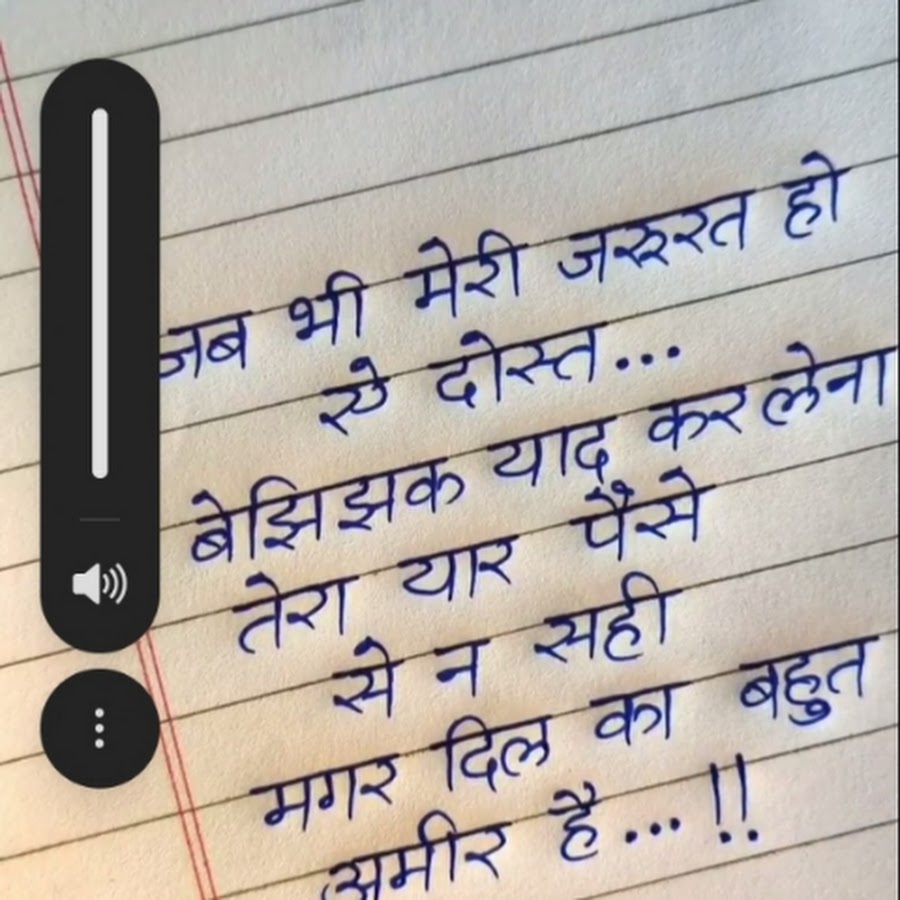 जब भी मेरी जरूरत हो
ऐ दोस्त...
बेझिझक याद कर लेना
तेरा यार पैसे
से न सही
मगर दिल का बहुत
अमीर है...!!